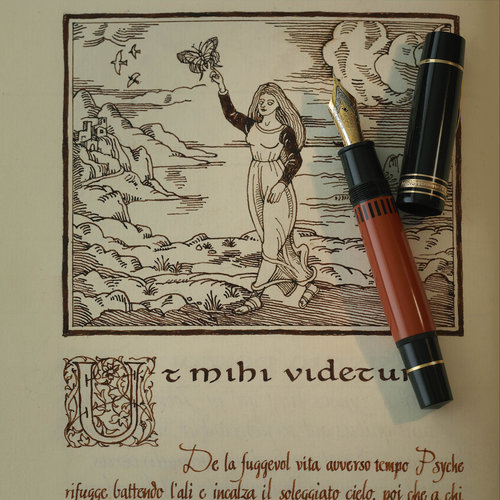 Ut mihi videtur
De la fuggevol vita avverso tempo Psyche
rifugge battendo l'ali e incalza il soleggiato cielo, poi che a chi